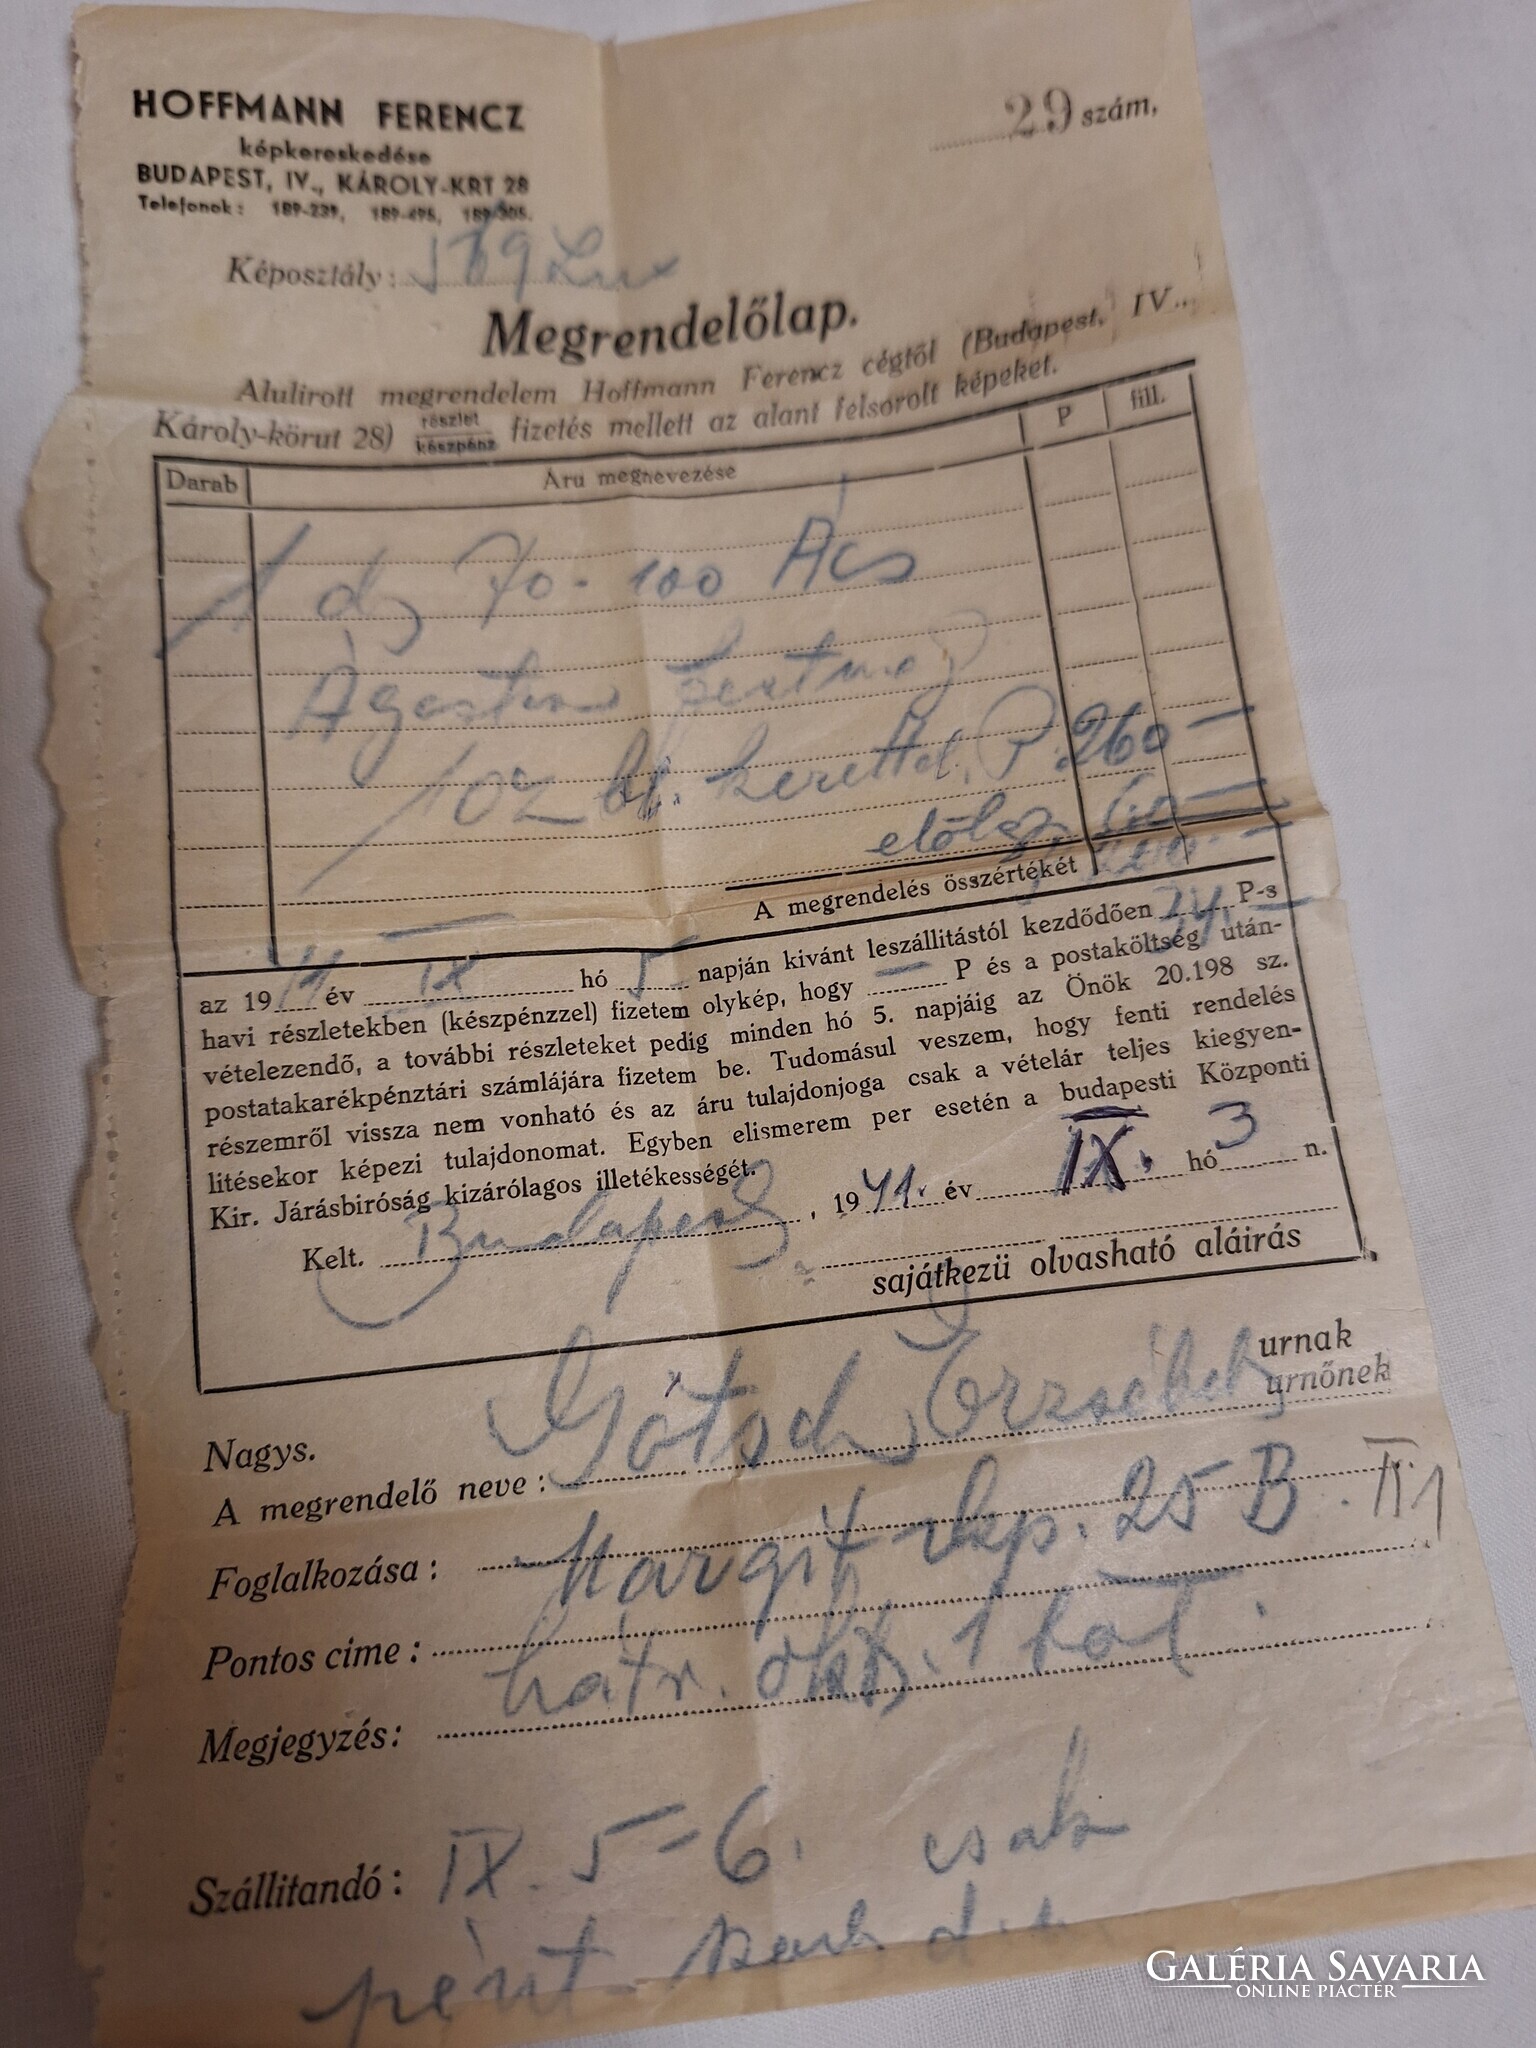 HOFFMANN FERENCZ
képkereskedése
BUDAPEST, IV., KÁROLY-KRT 28
Telefonok: 189-239, 189-495,
29 szám.
Képosztály:
Megrendelőlap.
Alulirott megrendelem Hoffmann Ferencz cégtől (Budapest, IV.,
Károly-körut 28) részlet készpénz fizetés mellett az alant felsorolt képeket.
Darab Áru megnevezése P fill.
1 70-100 Ács
Ágoston
102 bl. kerettel, P. 260 —
60 —
A megrendelés összértékét 200 —
az 19 év IX hó 5 napján kivánt leszállitástól kezdődően P-s
havi részletekben (készpénzzel) fizetem olykép, hogy — P és a postaköltség után-
vételezendő, a további részleteket pedig minden hó 5. napjáig az Önök 20.198 sz.
postatakarékpénztári számlájára fizetem be. Tudomásul veszem, hogy fenti rendelés
részemről vissza nem vonható és az áru tulajdonjoga csak a vételár teljes kiegyen-
litésekor képezi tulajdonomat. Egyben elismerem per esetén a budapesti Központi
Kir. Járásbiróság kizárólagos illetékességét.
Kelt. Budapest, 1941. év IX. hó 3 n.
sajátkezü olvasható aláirás
urnak
Nagys. urnőnek
A megrendelő neve: Götsch Erzsébet
Foglalkozása: Margit rkp. 25 B. II 1
Pontos cime: hátr. 1 től
Megjegyzés:
Szállitandó: IX. 5-6. csak
pént
GALÉRIA SAVARIA
ONLINE PIACTÉR